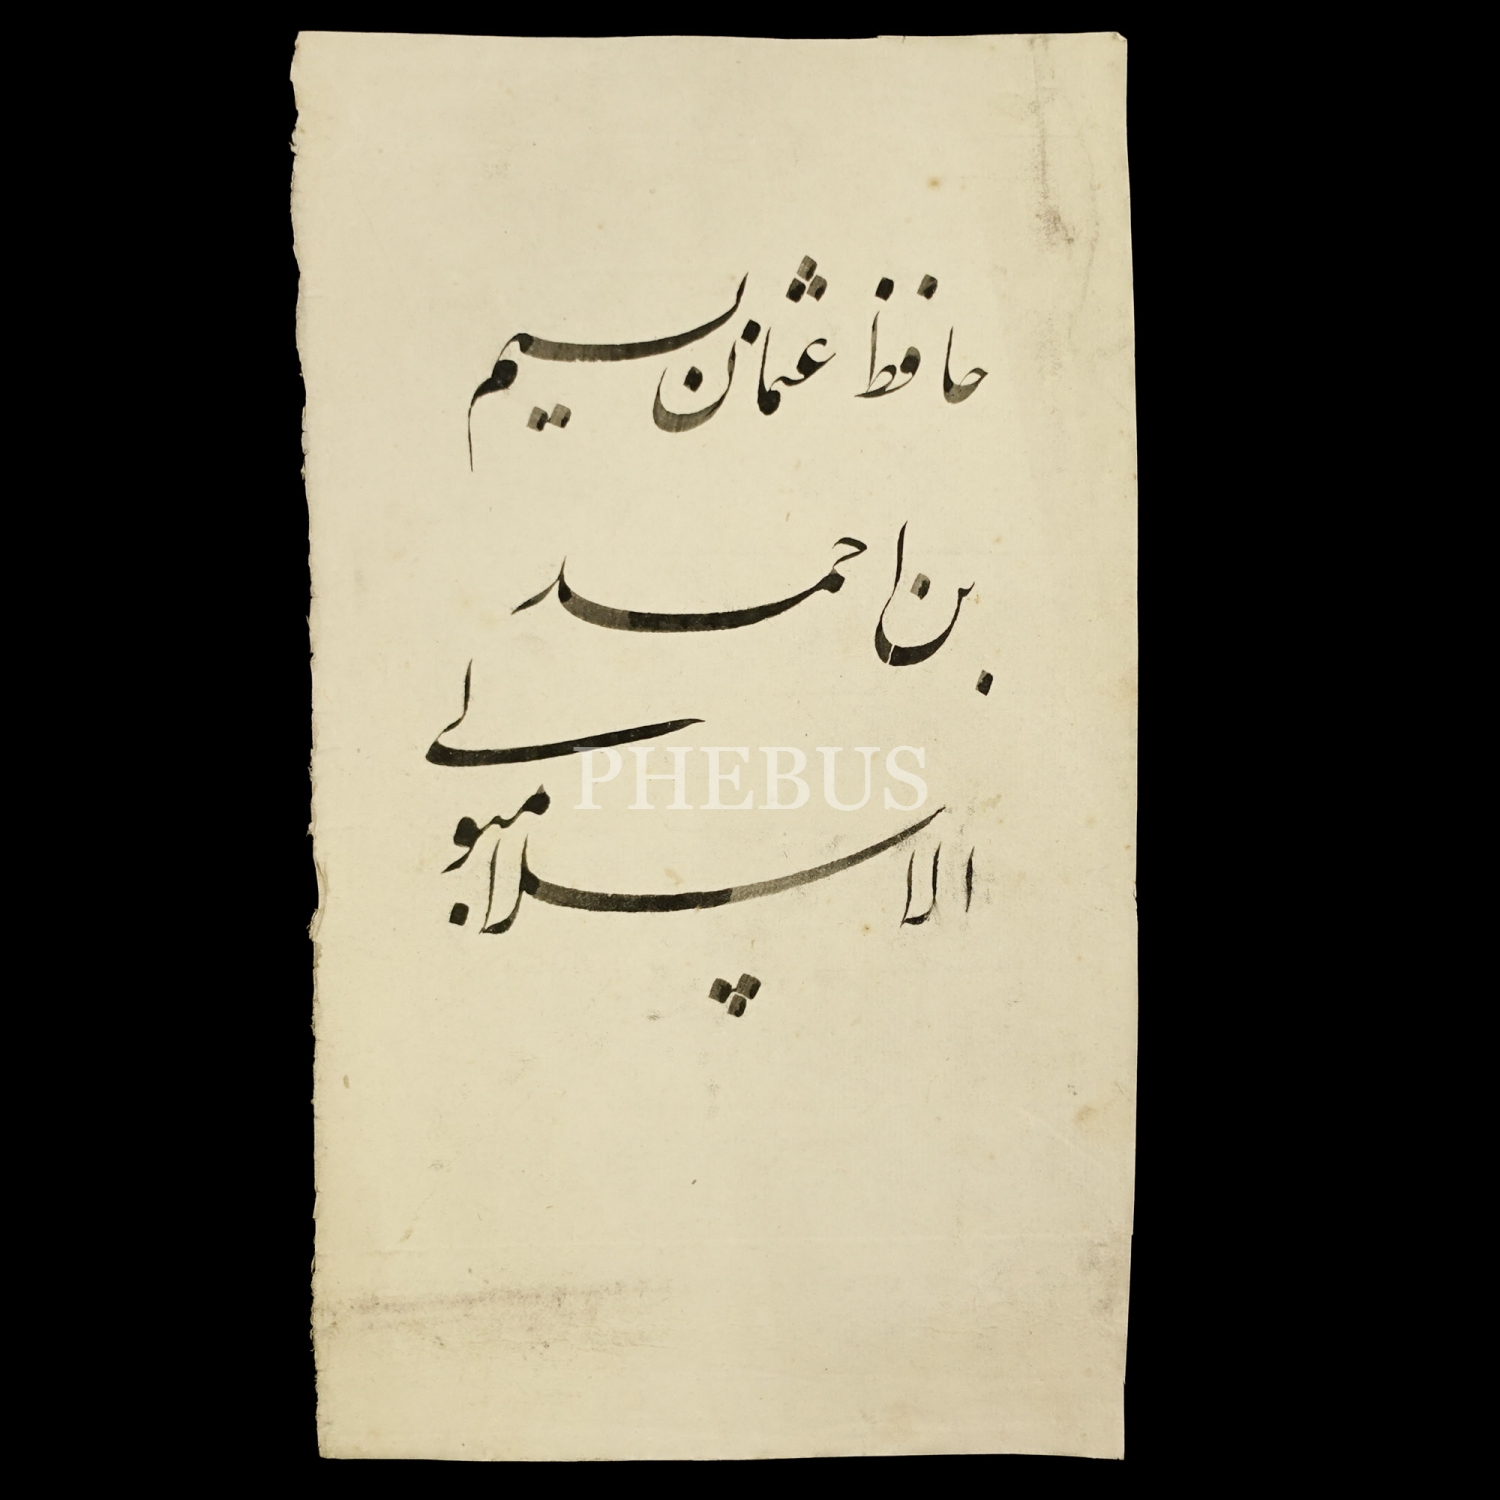 حافظ عثمان بسيم
بن احمد
الاسلامبولي
PHEBUS